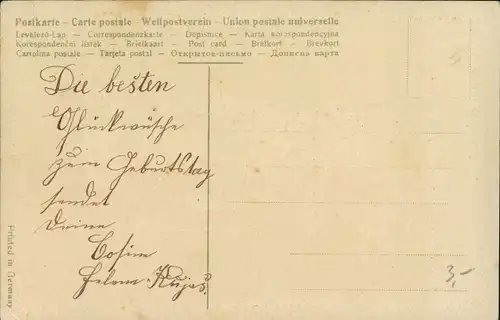 Postkarte - Carte postale - Weltpostverein - Union postale universelle
Levelező-Lap — Correspondenzkarte — Dopisnice — Karta korespondencyjna
Korespondenční lístek — Briefkaart — Post card — Brefkort — Brevkort
Cartolina postale — Tarjeta postal — Открытое-письмо — Дописна карта
Die besten
Glückwünsche
zum Geburtstag
sendet
Deine
Cosine
3,-
Printed in Germany